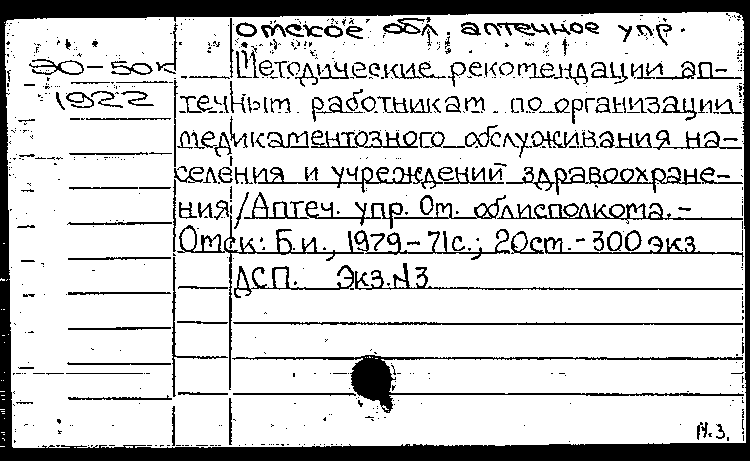 Омское обл. аптечное упр.
ЭО-50к
1922
Методические рекомендации ап-
течным работникам по организации
медикаментозного обслуживания на-
селения и учреждений здравоохране-
ния/Аптеч. упр. Ом. облисполкома.-
Омск: Б.и., 1979.-71с.; 20см.-300экз
ДСП. Экз.N3
М.3.